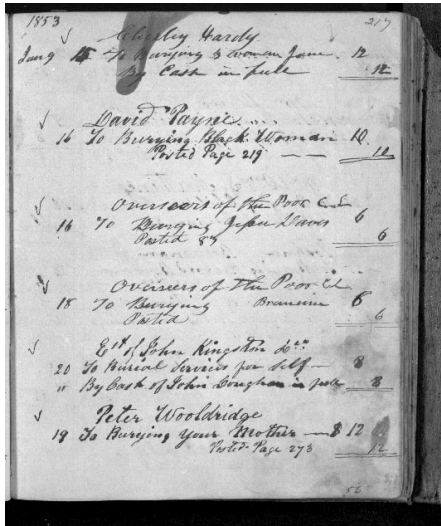 1853 217
Charley Hardy
Jany 15 To Burying B woman Jane 12
By Cash in full 12
David Payne
16 To Burying Black Woman 10
Posted Page 219 10
Overseers of the Poor
16 To Burying Davis 6
Posted 89 6
Overseers of the Poor
18 To Burying 6
Posted 6
Est of John Kingston Dr
20 To Burial Services for self 8
" By Cash of John in full 8
Peter Wooldridge
19 To Burying your Mother $ 12
Posted Page 273 12